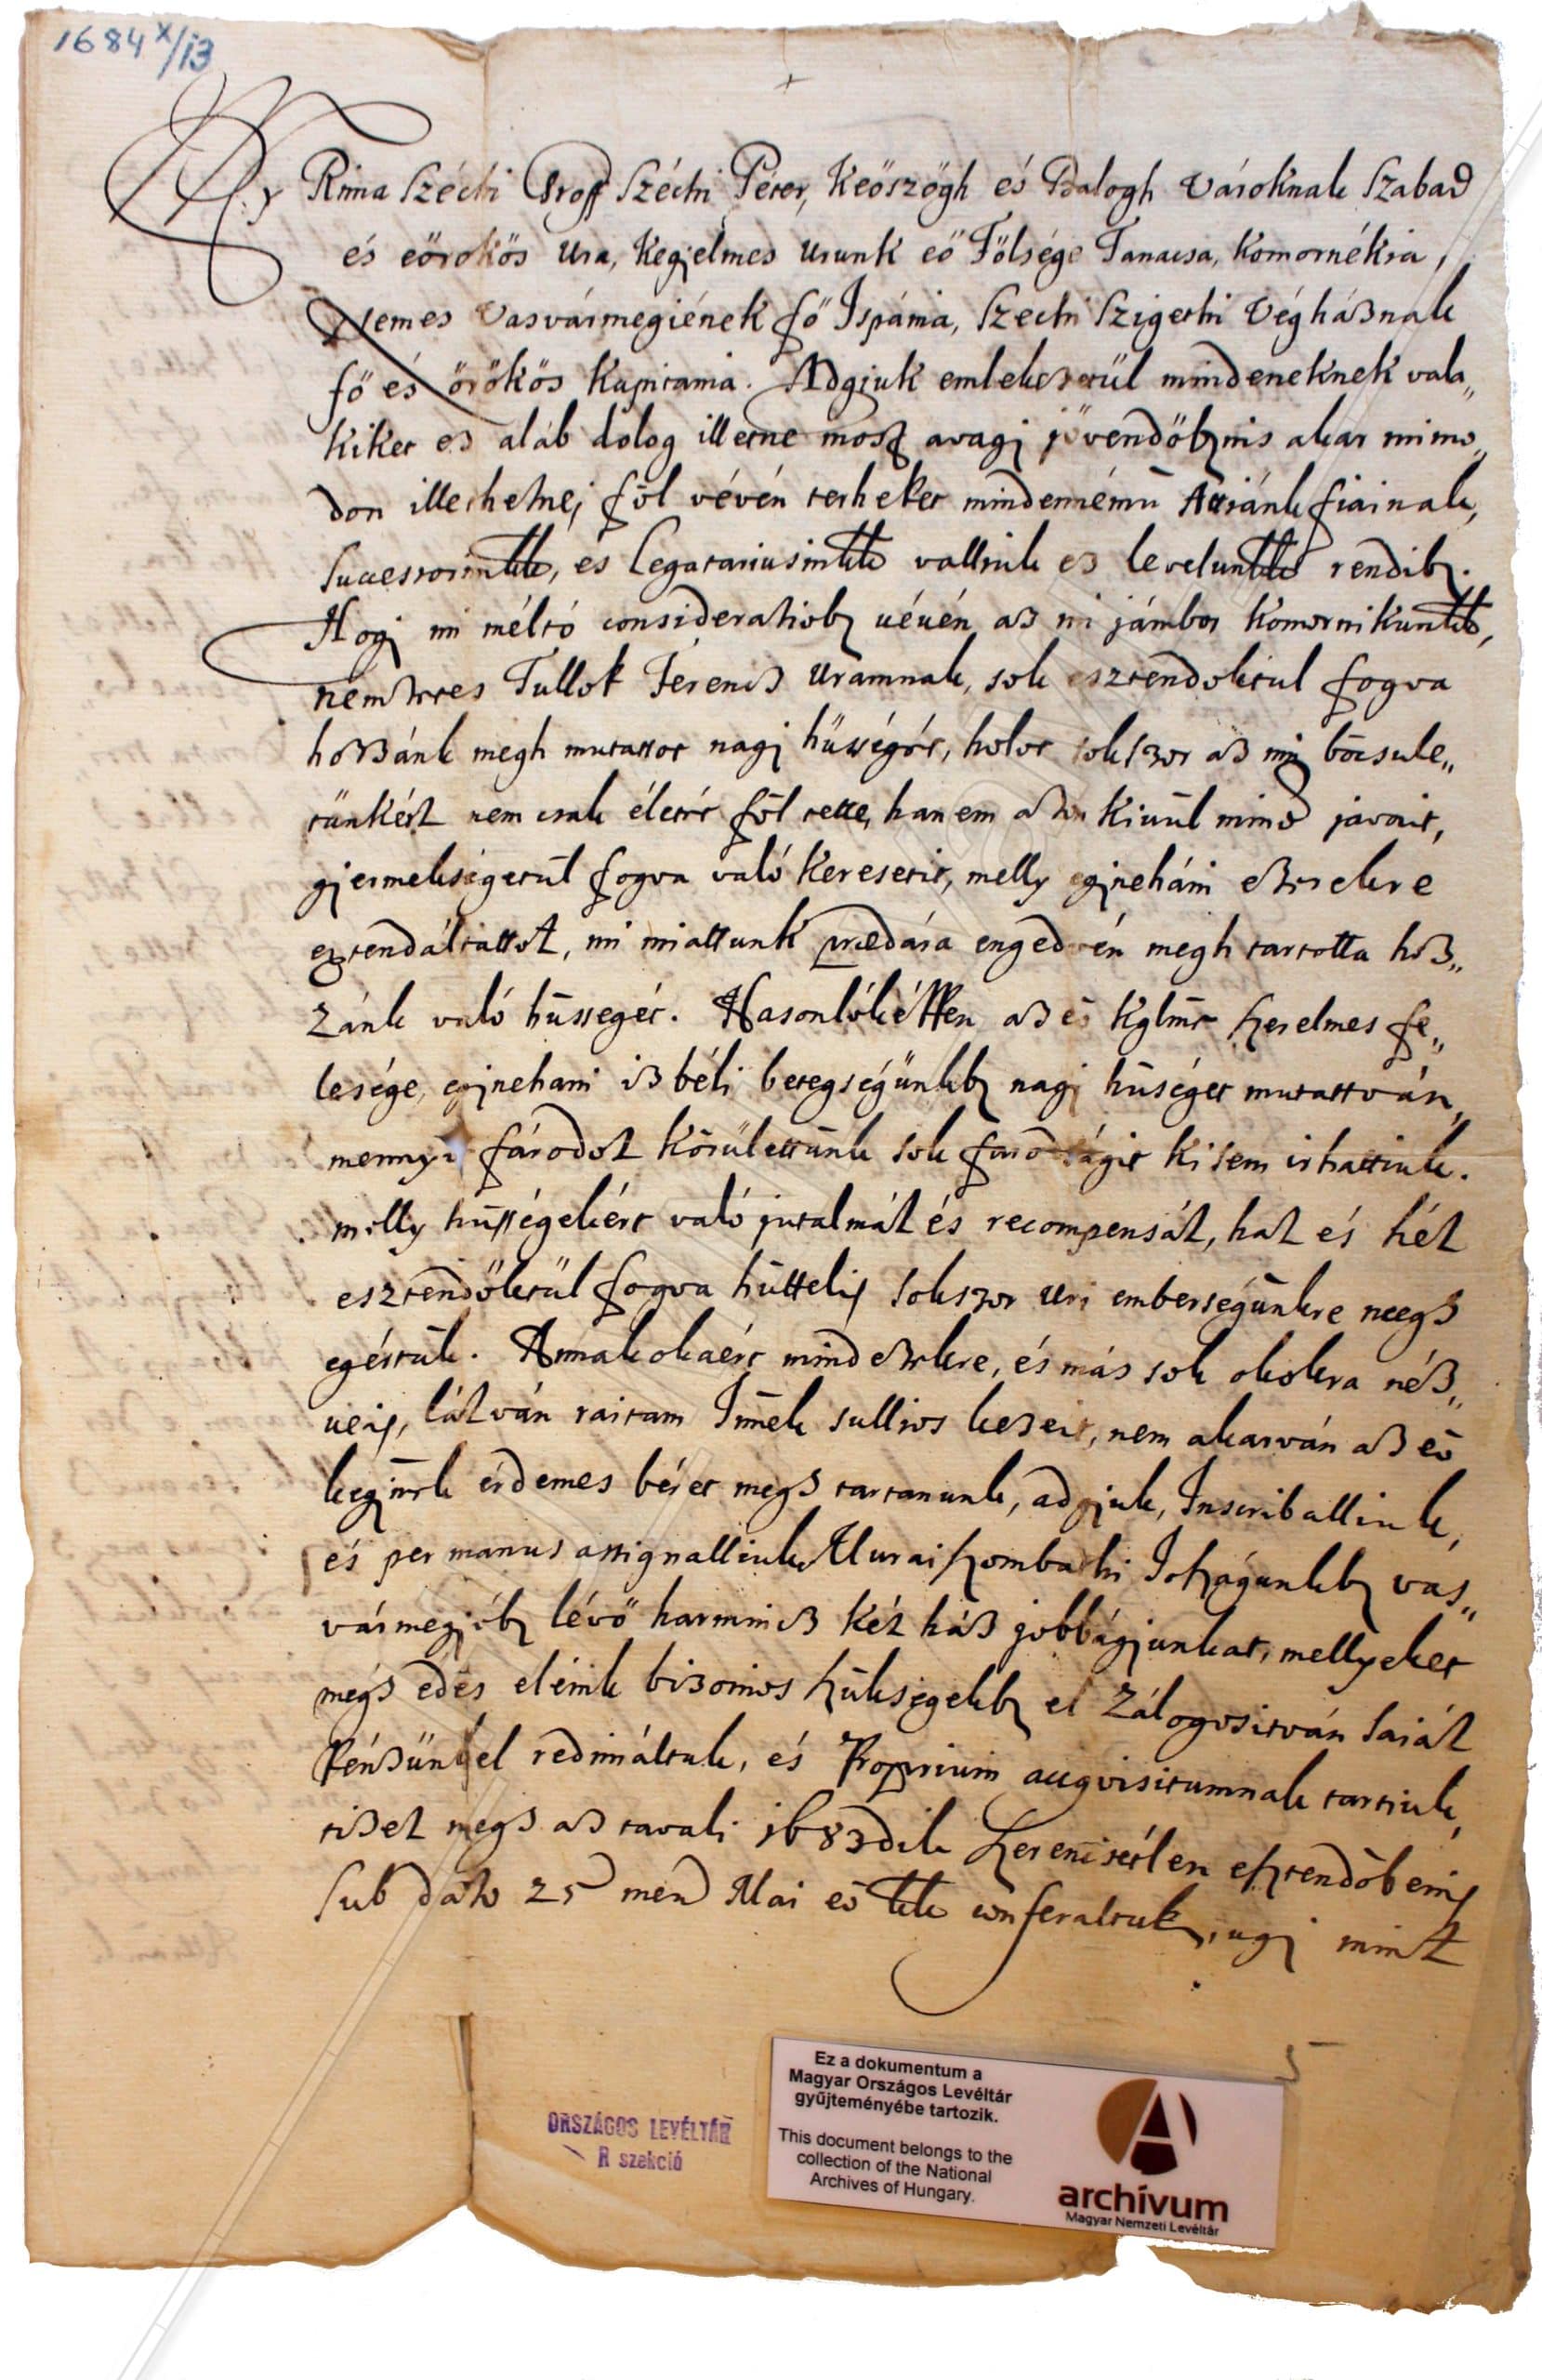 1684 X/13
Mÿ Rima Széchi Groff Széchi Péter, Keöszögh és Balogh Városknak Szabad
és eörökös Ura, Kegjelmes Urunk eö Fölsége Tanacsa, Komornékia,
Nemes Vasvármegiének fö Ispánia, Szechi Szigethi Végháznak
fö és örökös Kapitania. Adgiuk emlekezetül mindeneknek vala„
kiket ez aláb dolog illetne most avagj jövendöbennis akar mimo„
don illethetnej föl vévén terheket mindennémü Attiánkfiainak,
Successorinknak, és Legatariusinknak valliuk ez levelunknek rendiben.
Hogj mi méltó consideratioben vévén az mi jámbor Komornikunknak,
nemzetes Tullok Ferencz Uramnak, sok esztendoktul fogva
hozzánk megh mutattot nagj hüsségét, holot sokszor az mi böcsüle„
tünkért nem csak életét föl tette, hanem azon kivül mind javait,
gjermekségetül fogva való keresetit, melly egjneháni ezerekre
extendáltattot, mi miattunk prædára engedvén megh tartotta hoz„
zánk való hüsseget. Hasonlóképpen az eö Kglmt szerelmes fe„
lesége, egjnehani izbéli betegségünkben nagj hüséget mutattván,
mennyit fárodot körülettünk sok farodságit ki sem irhattiuk.
melly hüsségekért való jutalmát és recompensát, hat és hét
esztendöktül fogva hüttelis sokszor Uri emberségünkre meegh
egértük. Annakokaért mind ezekre, és más sok okokra néz„
veis, látván raitam Istennek sullios kezeit, nem akarván az eö
kegjmek érdemes bérét megh tartanunk, adgjuk, Inscriballiuk,
és per manus assignalliuk Muraiszombathi Jószágunkban vas„
vármegjében lévö harmincz két ház jobbágjunkat, mellyeket
megh edes eleink bizonios szükségekben el zálogositván saiát
Pénzünkel redimáltuk, és Proprium acqvisitumnak tartiuk,
tizet megh az tavali 1683dik szerencsétlen esztendöbenis
Sub dato 25 men Mai eö kknek conferaltuk, ugj mint
5
ORSZÁGOS LEVÉLTÁR
R szekció
Ez a dokumentum a
Magyar Országos Levéltár
gyűjteményébe tartozik.
This document belongs to the
collection of the National
Archives of Hungary.
archívum
Magyar Nemzeti Levéltár